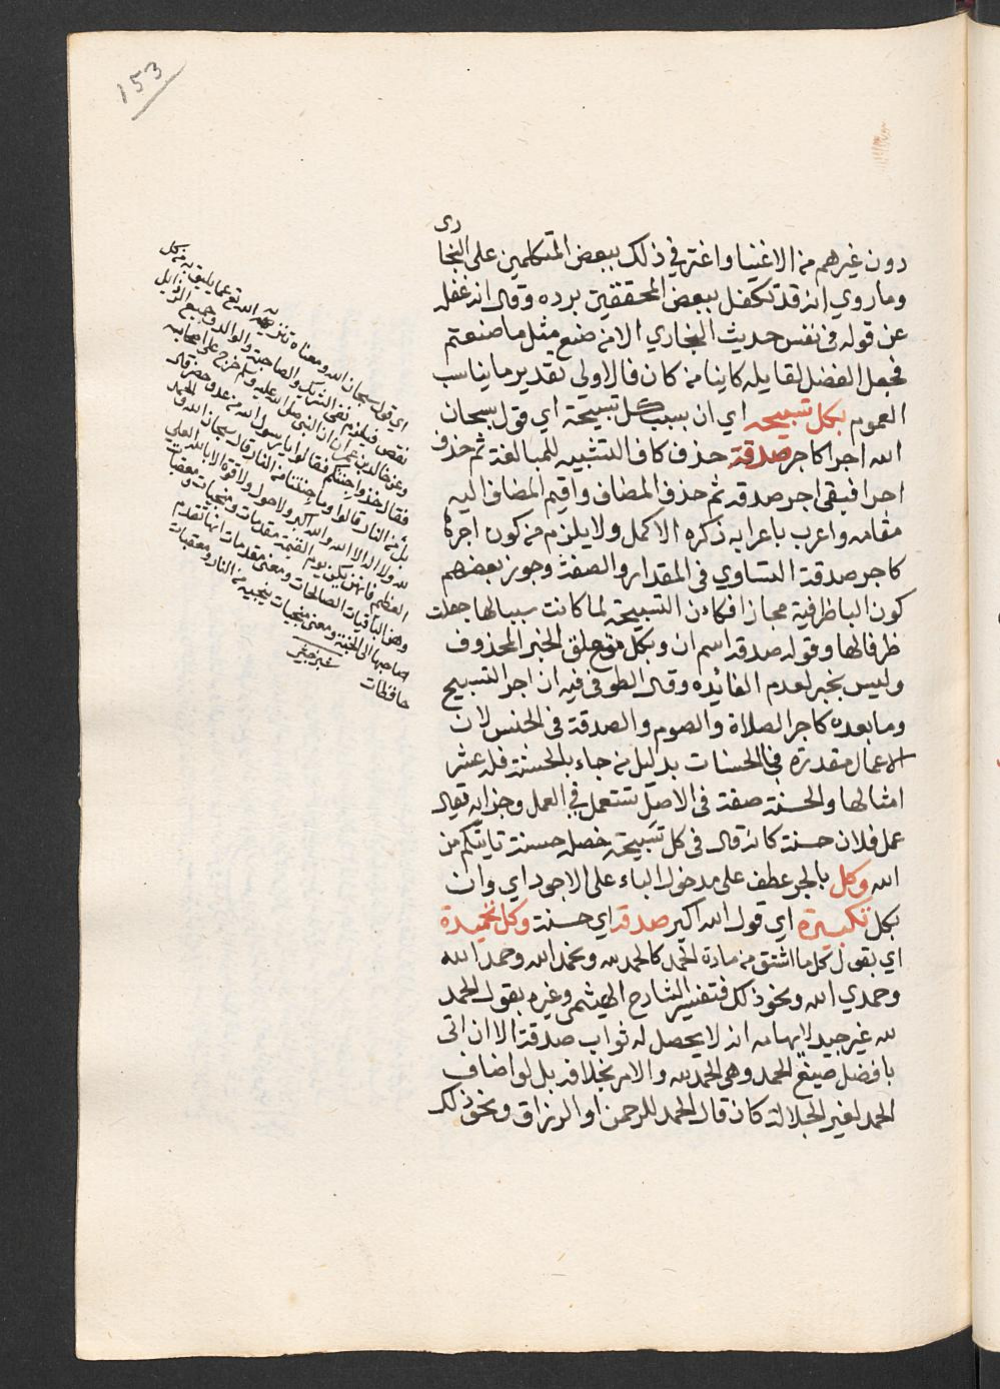 153
رى
دون غيرهم من الاغنيا واغتر في ذلك ببعض المتكلمين على البخا
وما روي انه قد تكفل ببعض المحققين برده وقال انه غفل
عن قوله في نفس حديث البخاري الا من صنع مثل ما صنعتم
فجعل الفضل لقايله كاينا من كان فالاولى تقدير ما يناسب
العموم بكل تسبيحه اي ان بسبب كل تسبيحة اي قول سبحان
الله اجرا كاجر صدقة حذف كاف التشبيه للمبالغة ثم حذف
اجرا فبقي اجر صدقه ثم حذف المضاف واقيم المضاف اليه
مقامه واعرب باعرابه ذكره الاكمل ولا يلزم من كون اجره
كاجر صدقة التساوي في المقدار والصفة وجوز بعضهم
كون البا ظرفية مجازا فكان التسبيحة لما كانت سببا لها جعلت
ظرفا لها وقوله صدقه اسم ان وبكل متعلق الخبر المحذوف
وليس بخبر لعدم الفائده وقال الطوفي فيه ان اجر التسبيح
وما بعده كاجر الصلاة والصوم والصدقة في الجنس لان
الاعمال مقدرة في الحسنات بدليل من جاء بالحسنة فله عشر
امثالها والحسنة صفة في الاصل تستعمل في العمل وجزايه يقال
عمل فلان حسنة كانه قال في كل تسبيحة خصلة حسنة تاتيكم من
الله وكل بالجر عطف على مدخول الباء على الاجود اي وان
بكل تكبيرة اي قول الله اكبر صدقه اي حسنة وكل تحميدة
اي بقول كل ما اشتق من مادة الحمد كالحمد لله ونحمد الله وحمدا لله
وحمدي الله ونحو ذلك فتفسير الشارح الهيثمي وغيره بقول الحمد
لله غير جيد لايهامه انه لا يحصل له ثواب صدقة الا ان اتى
بافضل صيغ الحمد وهي الحمد لله والامر بخلافه بل لو اضاف
الحمد لغير الجلالة كان قال الحمد للرحمن او الرزاق ونحو ذلك
اي قول سبحان الله ومعناه تنزيه الله تع عما يليق به من كل
نقص فيلزم نفي الشريك والصاحبة والوالد وجميع الرذايل
وعن خالد بن عمران ان النبي صلى الله عليه وسلم خرج على اصحابه
فقال خذوا جنتكم فقالوا يا رسول الله من عدو حضر قال
بل من النار قالوا وما جنتنا من النار قال سبحان الله والحمد
لله ولا اله الا الله والله اكبر ولا حول ولا قوة الا بالله العلي
العظيم فانهن ياتين يوم القيمة مقدمات ومنجيات ومعقبات
وهن الباقيات الصالحات ومعنى مقدمات انها تقدم
صاحبها الى الجنة ومعنى منجيات ينجيه من النار ومعقبات
حافظات